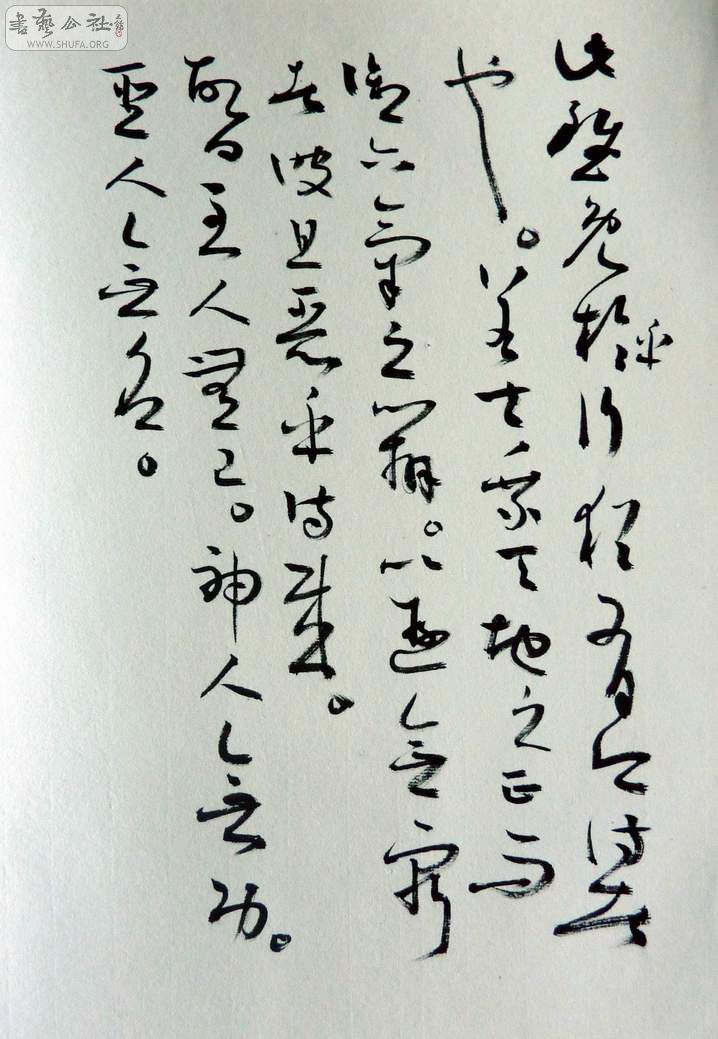 书艺公社
WWW.SHUFA.ORG
此雖免於乎行猶有所待者
也。若夫乘天地之正而
御六氣之辯。以遊無窮
者彼且惡乎待哉。
故曰至人無己。神人無功。
聖人無名。